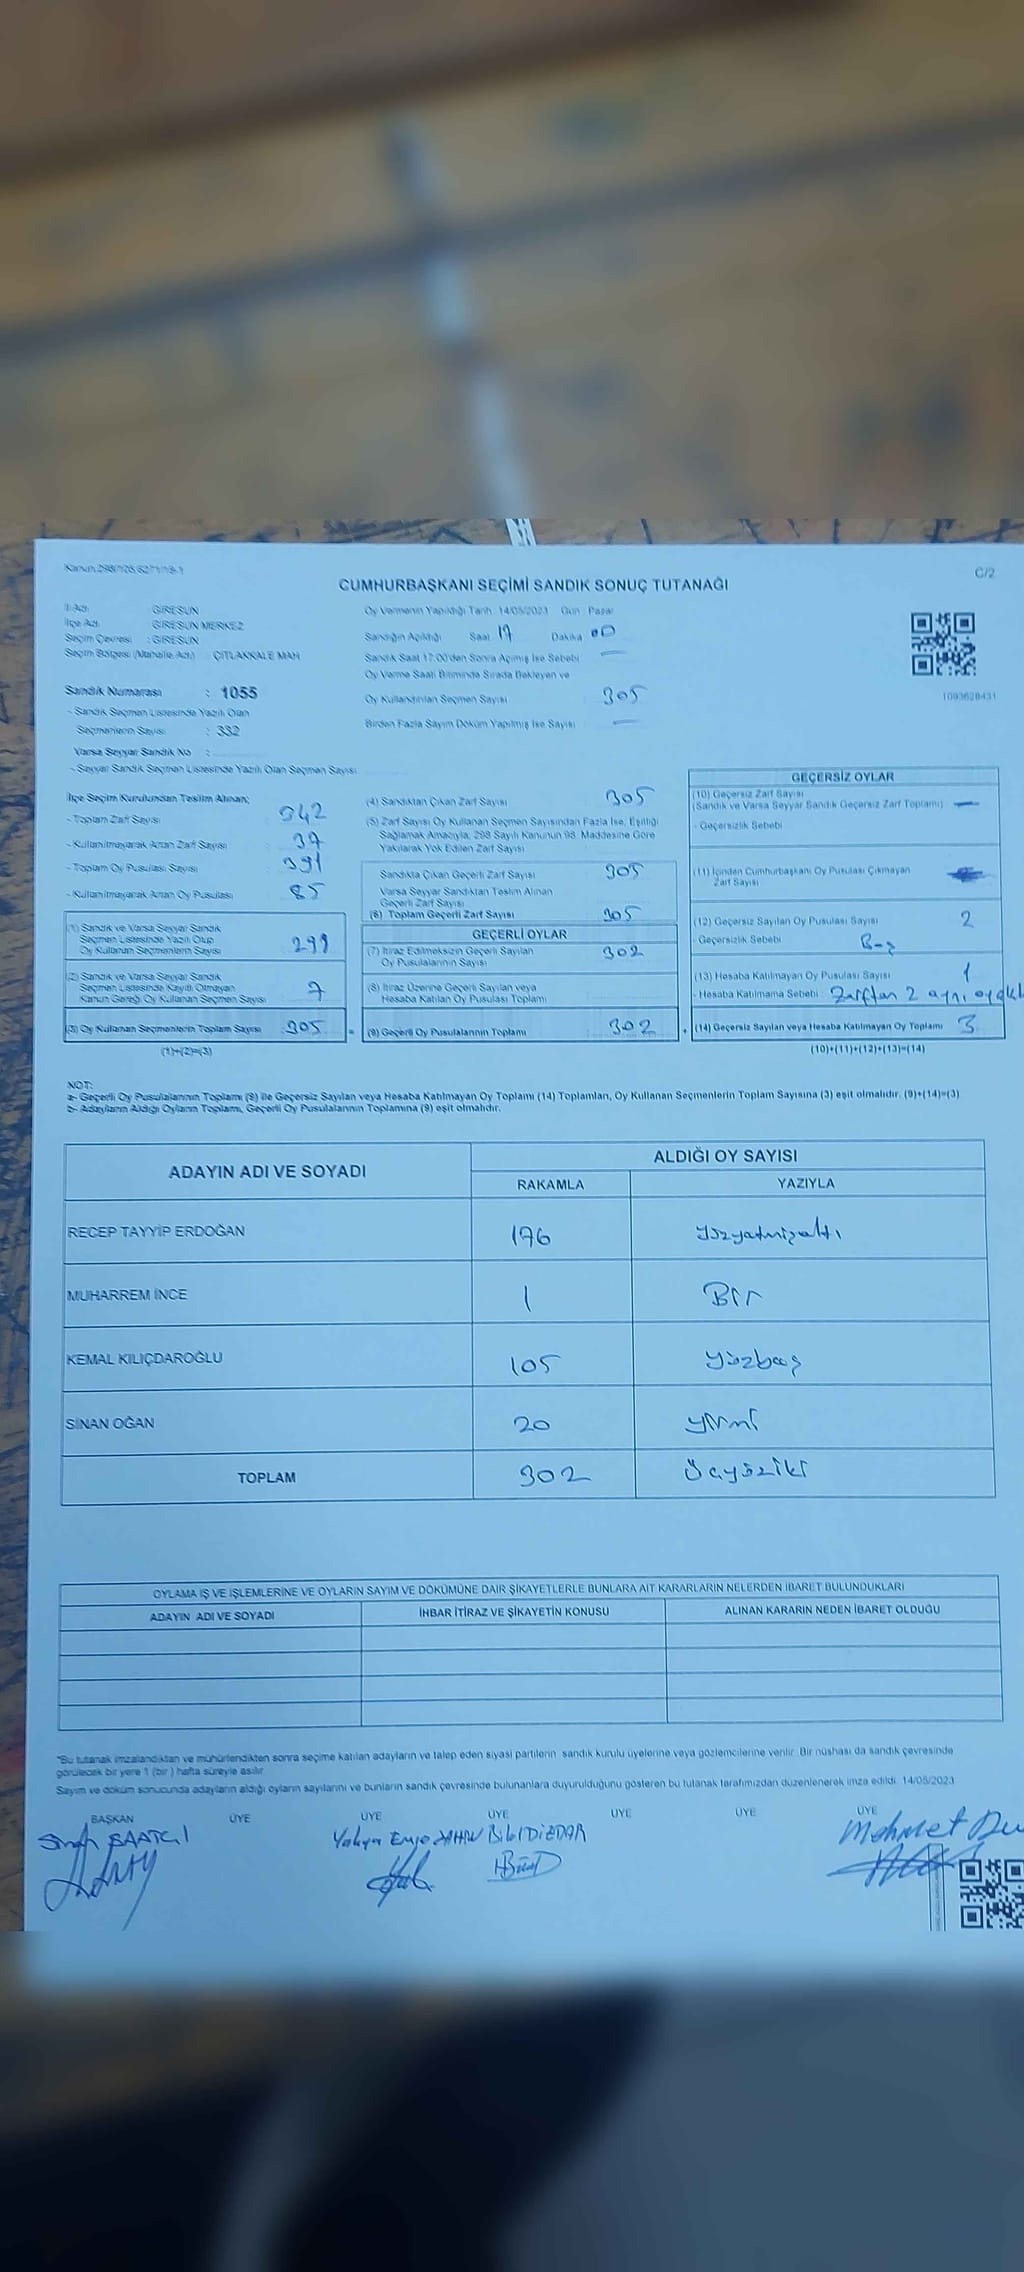 Kanun:298/105,6271/19-1
C/2
CUMHURBAŞKANI SEÇİMİ SANDIK SONUÇ TUTANAĞI
İl Adı : GİRESUN
İlçe Adı : GİRESUN MERKEZ
Seçim Çevresi : GİRESUN
Seçim Bölgesi (Mahalle Adı) : ÇITLAKKALE MAH
Oy Vermenin Yapıldığı Tarih 14/05/2023 Gün Pazar
Sandığın Açıldığı Saat 17 Dakika 00
Sandık Saat 17:00'den Sonra Açılmış İse Sebebi —
Oy Verme Saati Bitiminde Sırada Bekleyen ve
Oy Kullandırılan Seçmen Sayısı 305
Birden Fazla Sayım Döküm Yapılmış İse Sayısı —
1093628431
Sandık Numarası : 1055
- Sandık Seçmen Listesinde Yazılı Olan
Seçmenlerin Sayısı : 332
Varsa Seyyar Sandık No :
- Seyyar Sandık Seçmen Listesinde Yazılı Olan Seçmen Sayısı
İlçe Seçim Kurulundan Teslim Alınan;
- Toplam Zarf Sayısı 342
- Kullanılmayarak Artan Zarf Sayısı 37
- Toplam Oy Pusulası Sayısı 391
- Kullanılmayarak Artan Oy Pusulası 85
(1) Sandık ve Varsa Seyyar Sandık
Seçmen Listesinde Yazılı Olup
Oy Kullanan Seçmenlerin Sayısı
(2) Sandık ve Varsa Seyyar Sandık
Seçmen Listesinde Kayıtlı Olmayan
Kanun Gereği Oy Kullanan Seçmen Sayısı 7
(3) Oy Kullanan Seçmenlerin Toplam Sayısı 305
(1)+(2)=(3)
(4) Sandıktan Çıkan Zarf Sayısı 305
(5) Zarf Sayısı Oy Kullanan Seçmen Sayısından Fazla İse, Eşitliği
Sağlamak Amacıyla, 298 Sayılı Kanunun 98. Maddesine Göre
Yakılarak Yok Edilen Zarf Sayısı
Sandıkta Çıkan Geçerli Zarf Sayısı 305
Varsa Seyyar Sandıktan Teslim Alınan
Geçerli Zarf Sayısı
(6) Toplam Geçerli Zarf Sayısı 305
GEÇERLİ OYLAR
(7) İtiraz Edilmeksizin Geçerli Sayılan
Oy Pusulalarının Sayısı 302
(8) İtiraz Üzerine Geçerli Sayılan veya
Hesaba Katılan Oy Pusulası Toplamı
= (9) Geçerli Oy Pusulalarının Toplamı 302 +
GEÇERSİZ OYLAR
(10) Geçersiz Zarf Sayısı
(Sandık ve Varsa Seyyar Sandık Geçersiz Zarf Toplamı) —
- Geçersizlik Sebebi
(11) İçinden Cumhurbaşkanı Oy Pusulası Çıkmayan
Zarf Sayısı
(12) Geçersiz Sayılan Oy Pusulası Sayısı 2
- Geçersizlik Sebebi Boş
(13) Hesaba Katılmayan Oy Pusulası Sayısı 1
- Hesaba Katılmama Sebebi Zarftan 2 ayrı
(14) Geçersiz Sayılan veya Hesaba Katılmayan Oy Toplamı 3
(10)+(11)+(12)+(13)=(14)
NOT:
a- Geçerli Oy Pusulalarının Toplamı (9) ile Geçersiz Sayılan veya Hesaba Katılmayan Oy Toplamı (14) Toplamları, Oy Kullanan Seçmenlerin Toplam Sayısına (3) eşit olmalıdır. (9)+(14)=(3)
b- Adayların Aldığı Oyların Toplamı, Geçerli Oy Pusulalarının Toplamına (9) eşit olmalıdır.
ADAYIN ADI VE SOYADI
ALDIĞI OY SAYISI
RAKAMLA YAZIYLA
RECEP TAYYİP ERDOĞAN 176 Yüzyetmişaltı
MUHARREM İNCE 1 Bir
KEMAL KILIÇDAROĞLU 105 yüzbeş
SİNAN OĞAN 20 yirmi
TOPLAM 302 Üçyüziki
OYLAMA İŞ VE İŞLEMLERİNE VE OYLARIN SAYIM VE DÖKÜMÜNE DAİR ŞİKAYETLERLE BUNLARA AİT KARARLARIN NELERDEN İBARET BULUNDUKLARI
ADAYIN ADI VE SOYADI İHBAR İTİRAZ VE ŞİKAYETİN KONUSU ALINAN KARARIN NEDEN İBARET OLDUĞU
"Bu tutanak imzalandıktan ve mühürlendikten sonra seçime katılan adayların ve talep eden siyasi partilerin sandık kurulu üyelerine veya gözlemcilerine verilir. Bir nüshası da sandık çevresinde
görülecek bir yere 1 (bir) hafta süreyle asılır.
Sayım ve döküm sonucunda adayların aldığı oyların sayılarını ve bunların sandık çevresinde bulunanlara duyurulduğunu gösteren bu tutanak tarafımızdan düzenlenerek imza edildi. 14/05/2023
BAŞKAN ÜYE ÜYE ÜYE ÜYE ÜYE ÜYE
SAATÇI Yahya Bilal DİZDAR Mehmet